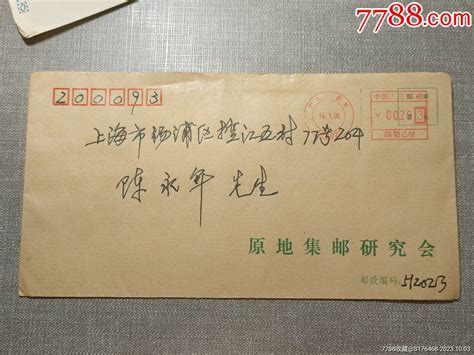 7788.com
200093
中国人民邮政
上海市杨浦区控江五村77号204
陈永年 先生
原地集邮研究会
邮政编码:512023
7788收藏@S176468-2023.10.03